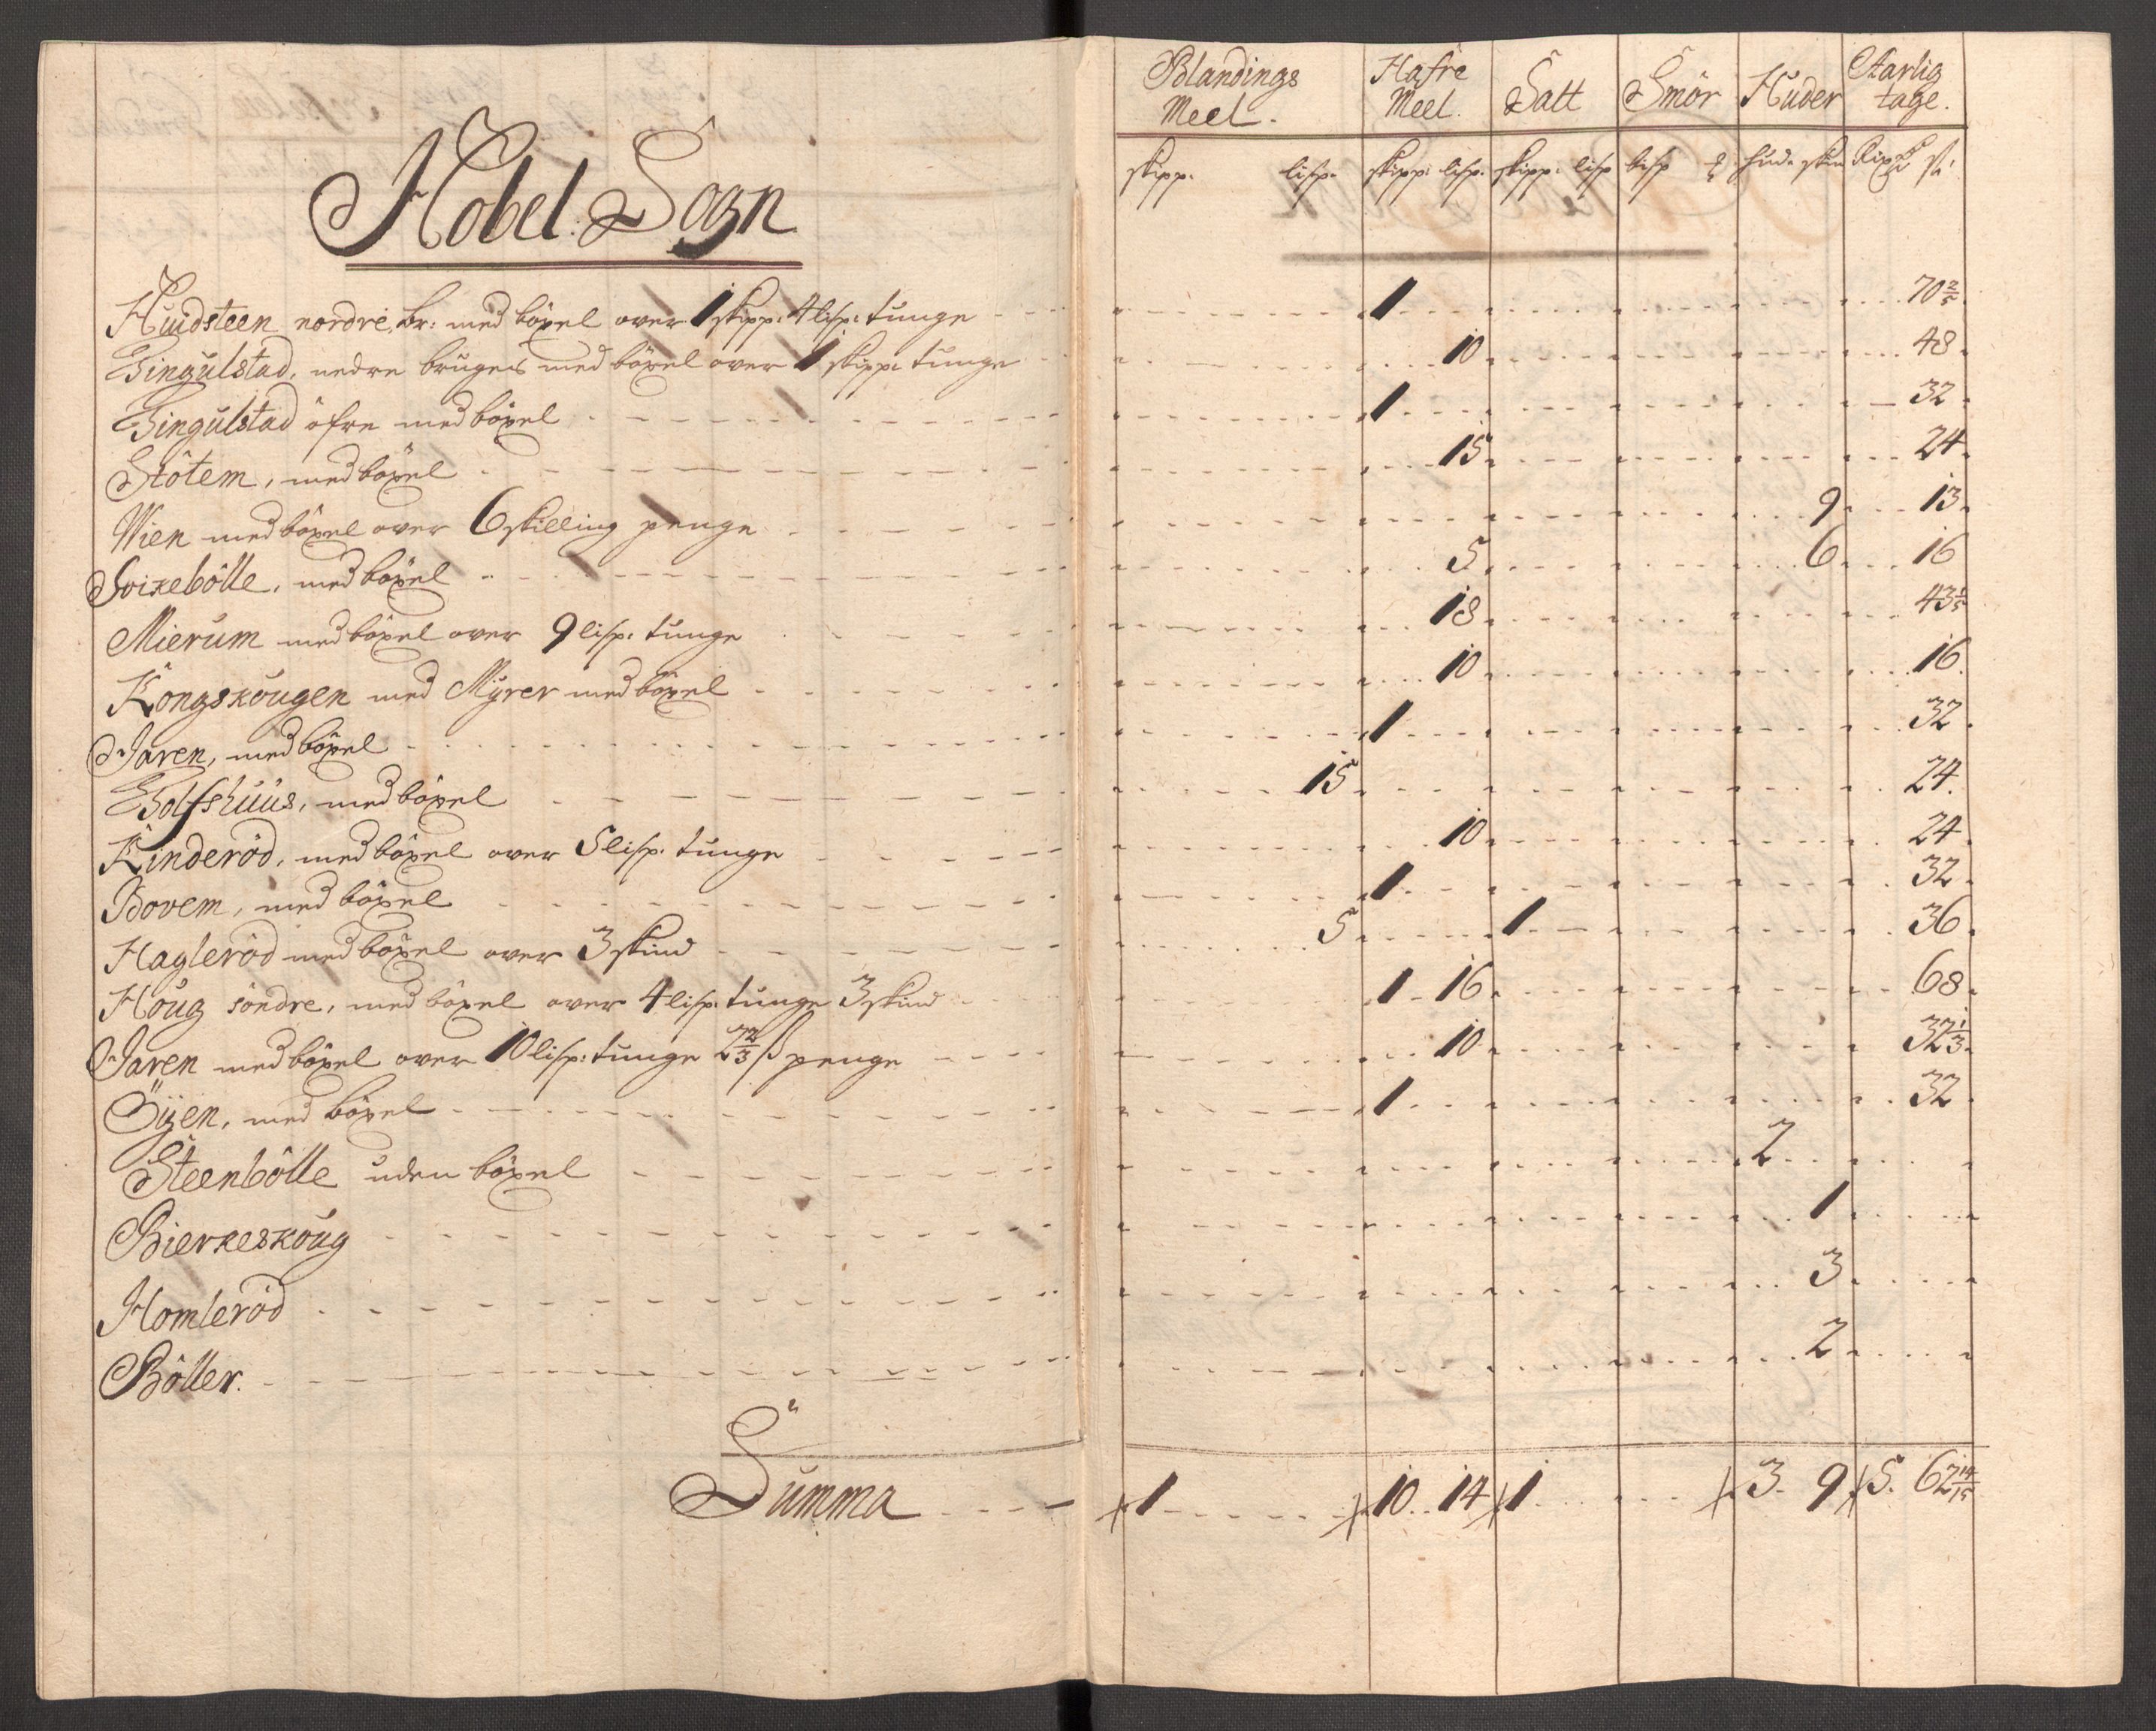 Hobel Sogn
Blandings Meel. | Hafre Meel. | Salt | Smör | Huder | Aarlig tage.
skipp. lisp. | skipp: lisp. | skipp: lisp | lisp | hud. skin | Rixd s:
Huidsteen nordre, br: med böxel over 1 skipp: 4 lisp: tunge 1 70 2/5
Tingulstad, nedre bruges med böxel over 1 skipp: tunge 10 48
Tingulstad öfre med böxel 1 32
Stötem, med böxel 15 24
Wien med böxel over 6 skilling penge 9 13
Soixebölle, med böxel 5 6 16
Mierum med böxel over 9 lisp: tunge 18 43 1/5
Kongskougen med Myrer med böxel 10 16
Jaren, med böxel 1 32
Tolfshuus, med böxel 15 24
Kinderöd, med böxel over 5 lisp. tunge 10 24
Bovem, med böxel 1 32
Hagleröd med böxel over 3 skind 5 1 36
Houg söndre, med böxel over 4 lisp: tunge 3 skind 1 16 68
Jaren med böxel over 10 lisp: tunge 2 2/3 ß penge 10 32 1/3
Öyen, med böxel 1 32
Steenbölle uden böxel 2
Bierkeskoug 1
Homleröd 3
Böller. 2
Summa 1 10 14 1 3 9 5. 62 14/15